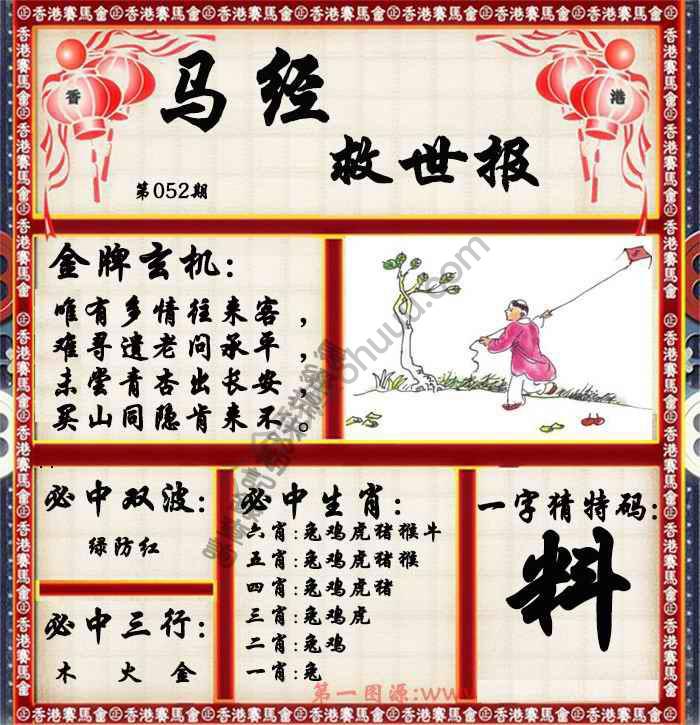 香港賽馬會
香
港
马经
救世报
第052期
金牌玄机：
唯有多情往来客，
难寻遗老问承平，
未尝青杏出长安，
买山同隐肯来不。
必中双波：
绿防红
必中三行：
木 火 金
必中生肖：
六肖：兔鸡虎猪猴牛
五肖：兔鸡虎猪猴
四肖：兔鸡虎猪
三肖：兔鸡虎
二肖：兔鸡
一肖：兔
一字猜特码：
料
第一图源：www